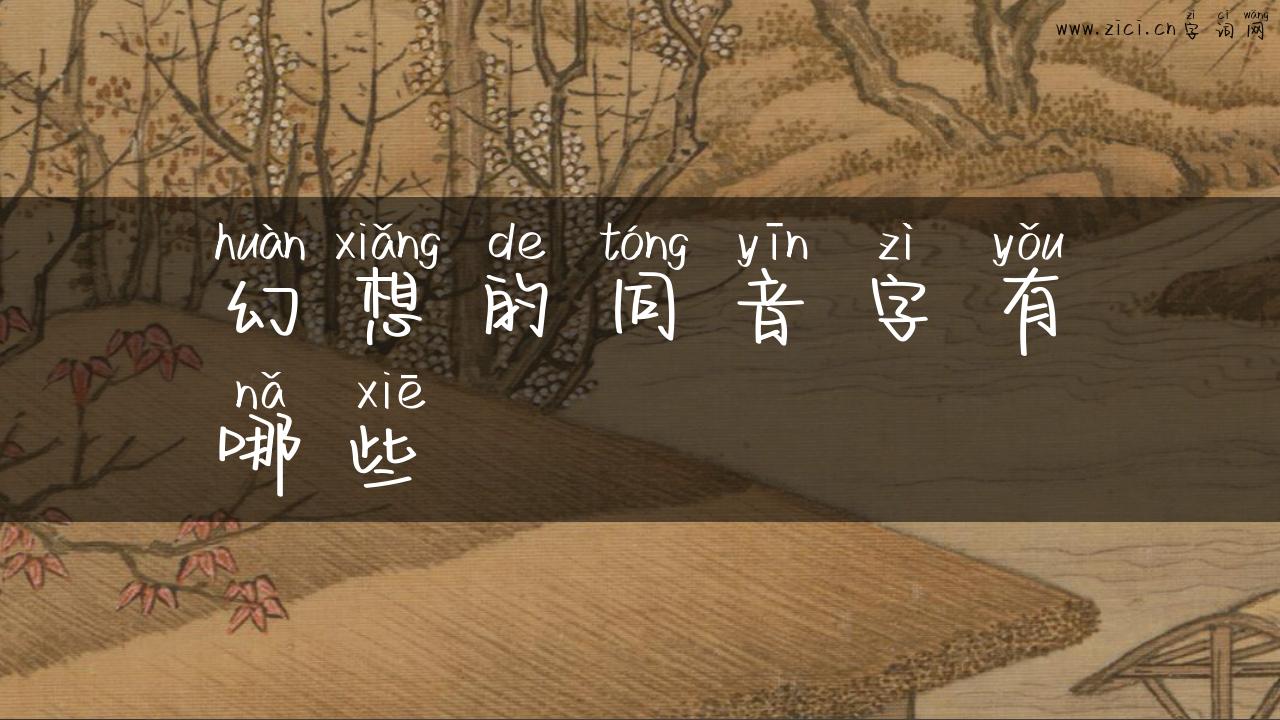 zì cí wǎng
www.zici.cn字词网
huàn xiǎng de tóng yīn zì yǒu
幻想的同音字有
nǎ xiē
哪些